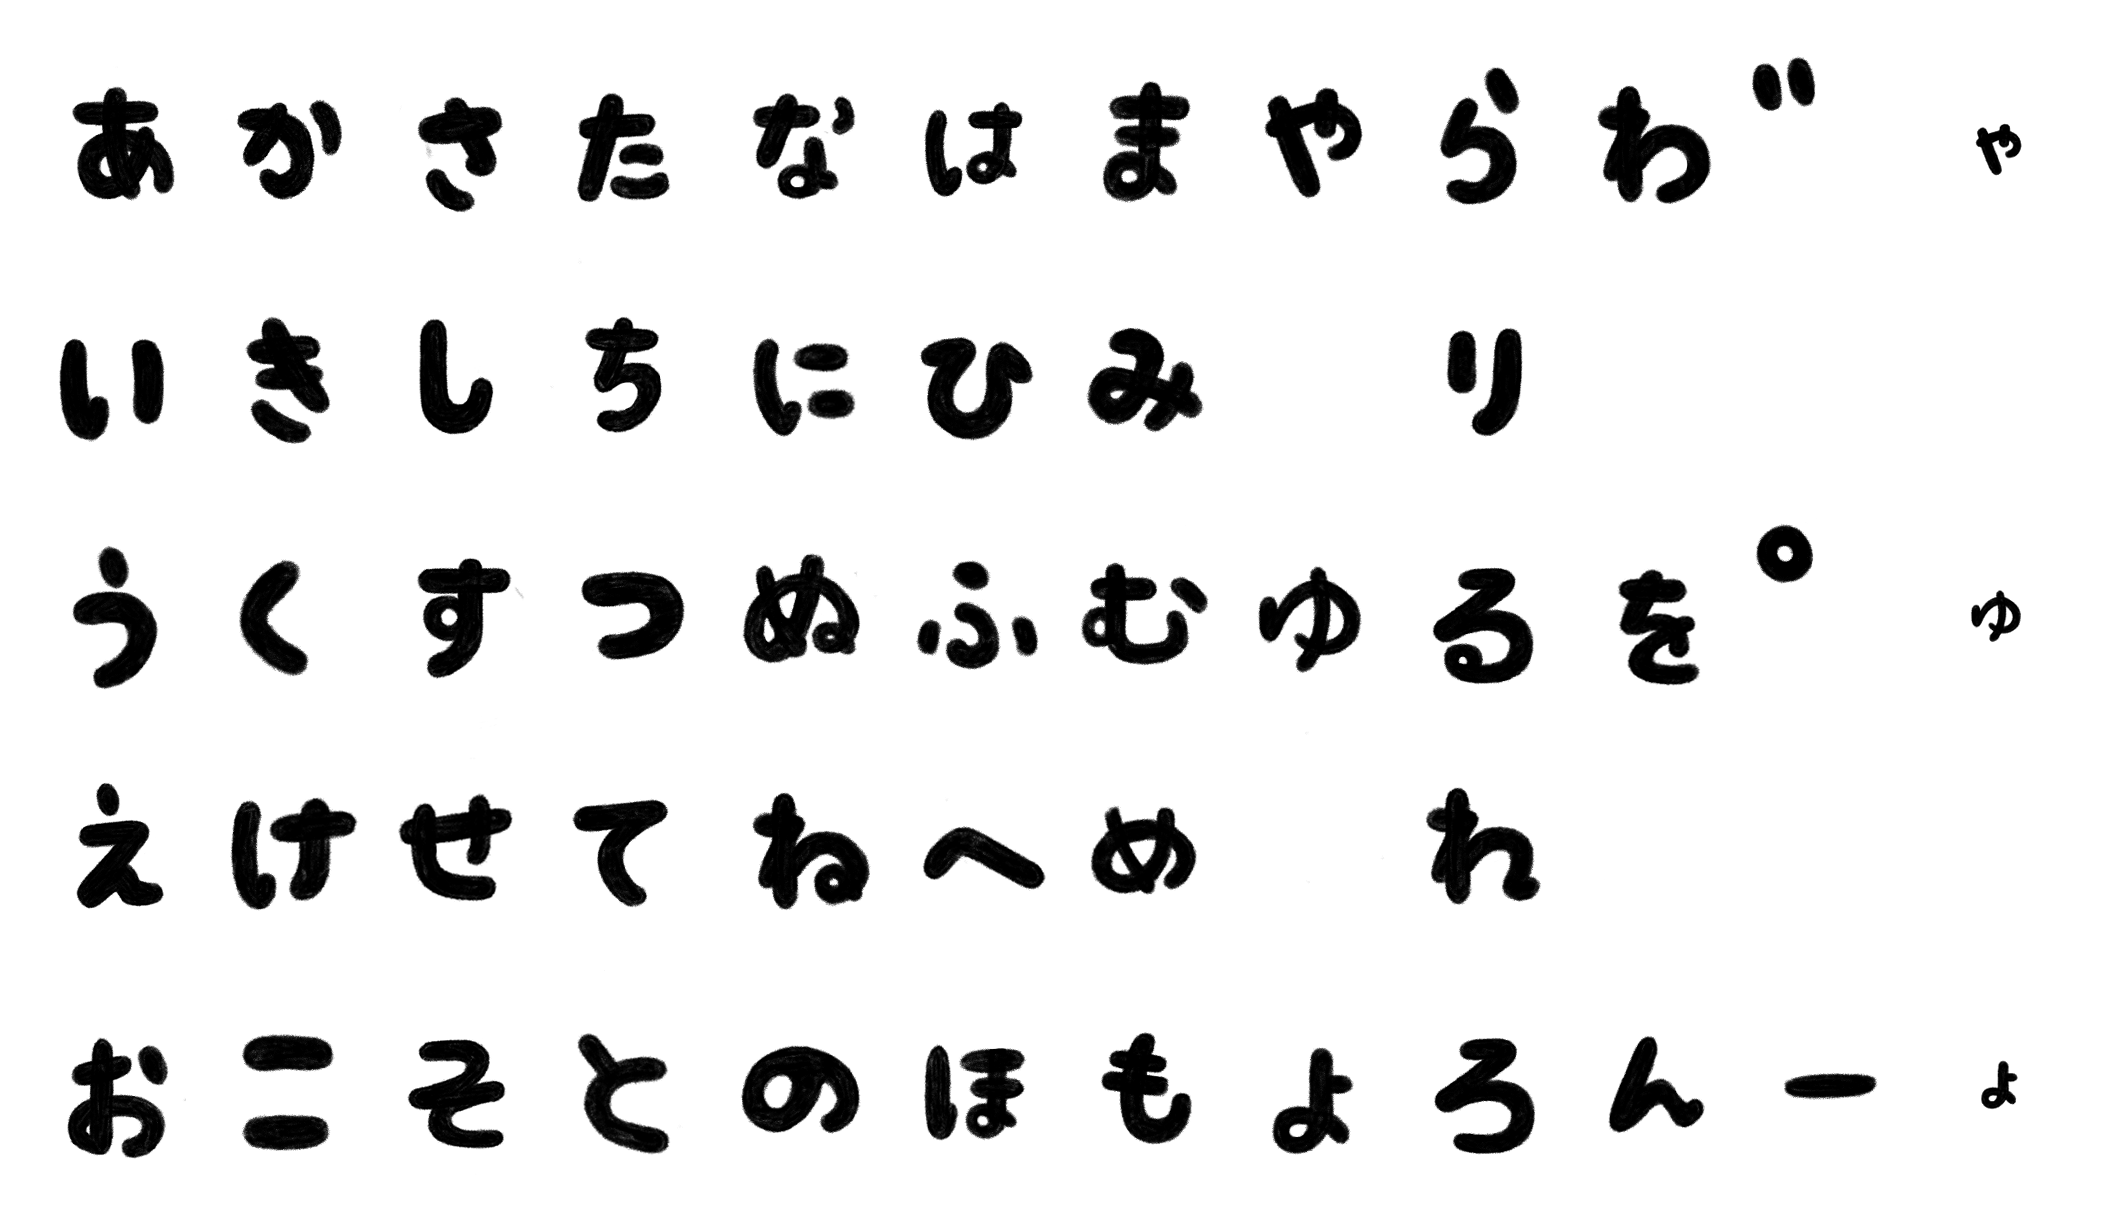 あ か さ た な は ま や ら わ ゛ ゃ
い き し ち に ひ み り
う く す つ ぬ ふ む ゆ る を ゜ ゅ
え け せ て ね へ め れ
お こ そ と の ほ も よ ろ ん ー ょ